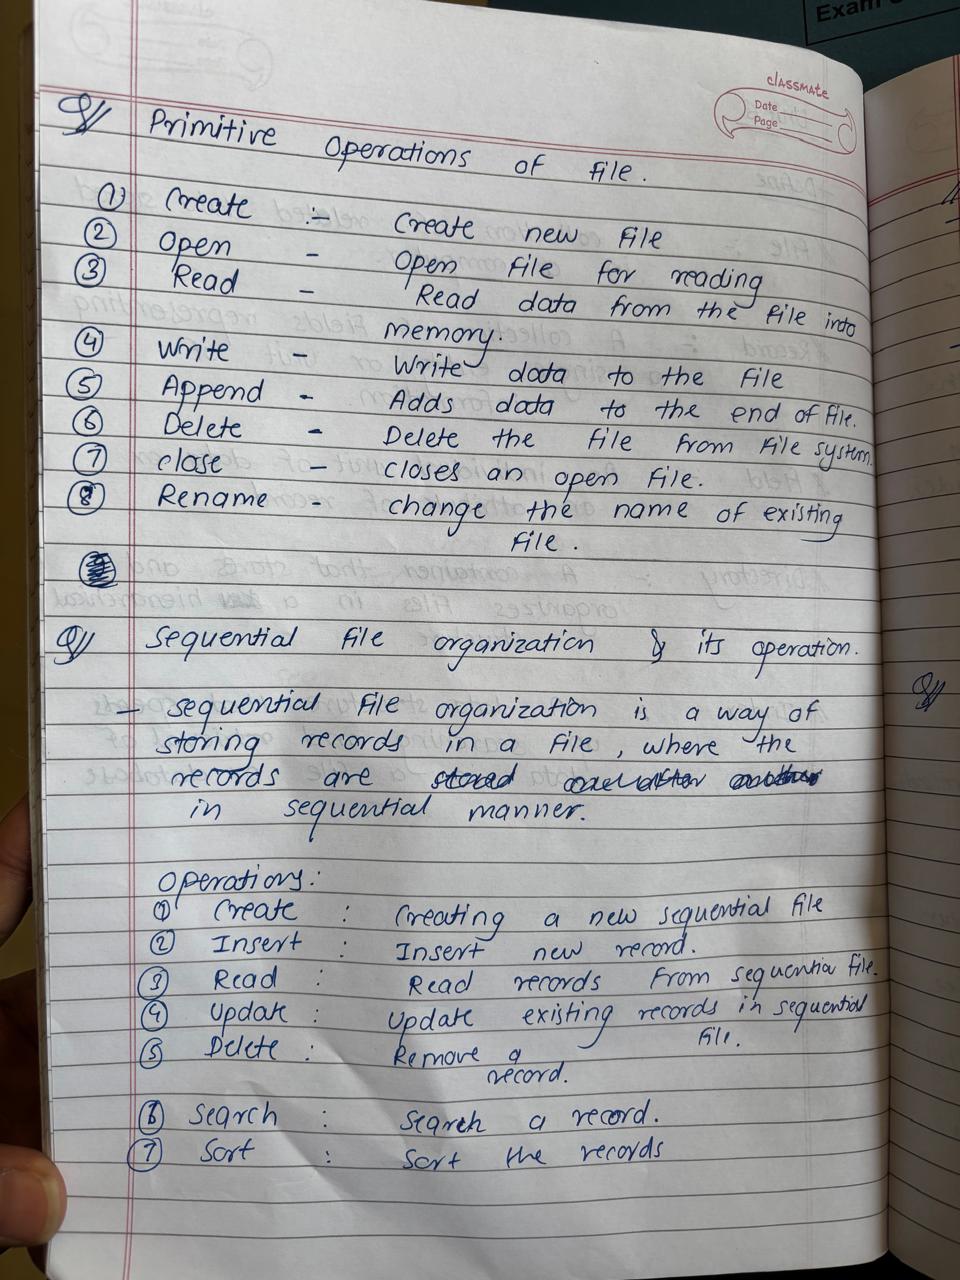 Exam
classmate
Date
Page
Q/ Primitive Operations of file.
① Create :- Create new file
② Open - Open file for reading
③ Read - Read data from the file into
memory.
④ Write - Write data to the file
⑤ Append - Adds data to the end of file.
⑥ Delete - Delete the file from file system.
⑦ close - closes an open file.
⑧ Rename - change the name of existing
file.
Q/ Sequential file organization & its operation.
- sequential file organization is a way of
storing records in a file, where the
records are stored one after another
in sequential manner.
Operations:
① Create : Creating a new sequential file
② Insert : Insert new record.
③ Read : Read records from sequential file.
④ Update : Update existing records in sequential
file.
⑤ Delete : Remove a
record.
⑥ Search : Search a record.
⑦ Sort : Sort the records
Q/